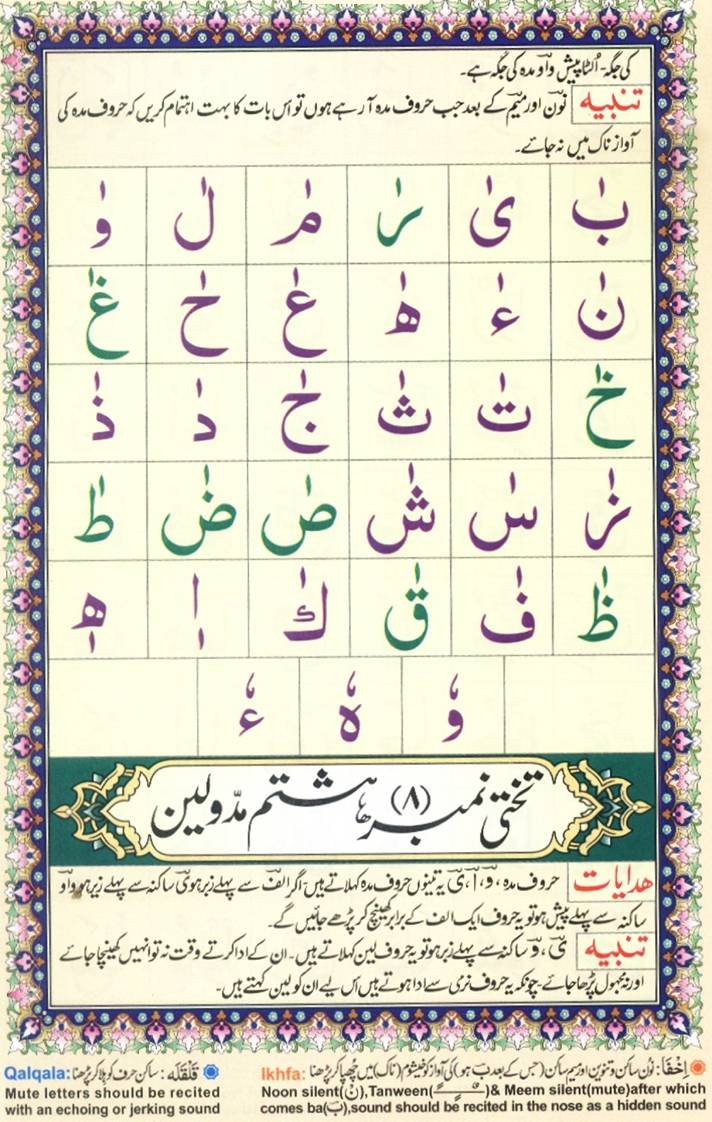 کی جگہ۔ اُلٹا پیش واو مدہ کی جگہ ہے۔
تنبیہ نون اور میم کے بعد جب حروف مدہ آ رہے ہوں تو اس بات کا بہت اہتمام کریں کہ حروف مدہ کی
آواز ناک میں نہ جائے۔
بٰ یٰ رٰ مٰ لٰ وٰ
نٰ ءٰ ھٰ عٰ حٰ غٰ
خٰ تٰ ثٰ جٰ دٰ ذٰ
زٰ سٰ شٰ صٰ ضٰ طٰ
ظٰ فٰ قٰ كٰ اٖ هٖ
وٗ هٗ ءٗ
تختی نمبر (۸) ہشتم مدّ و لین
ھدایات حروف مدہ، و، ا، ی یہ تینوں حروف مدہ کہلاتے ہیں۔ اگر الف سے پہلے زبر ہو ی ساکنہ سے پہلے زیر ہو واو
ساکنہ سے پہلے پیش ہو تو یہ حروف ایک الف کے برابر کھینچ کر پڑھے جائیں گے۔
تنبیہ ی، و ساکنہ سے پہلے زبر ہو تو یہ حروف لین کہلاتے ہیں۔ ان کے ادا کرتے وقت نہ تو انہیں کھینچا جائے
اور نہ مجہول پڑھا جائے۔ چونکہ یہ حروف نرمی سے ادا ہوتے ہیں اس لیے ان کو لین کہتے ہیں۔
Ikhfa: اِخْفَا: نون ساکن و تنوین اور میم ساکن (جس کے بعد ب ہو) کی آواز کو خیشوم (ناک) میں چُھپا کر پڑھنا
Noon silent(نْ),Tanween(ـًـٍـٌ)& Meem silent(mute)after which
comes ba(ب),sound should be recited in the nose as a hidden sound
Qalqala: قَلْقَلَه: ساکن حرف کو ہلا کر پڑھنا
Mute letters should be recited
with an echoing or jerking sound